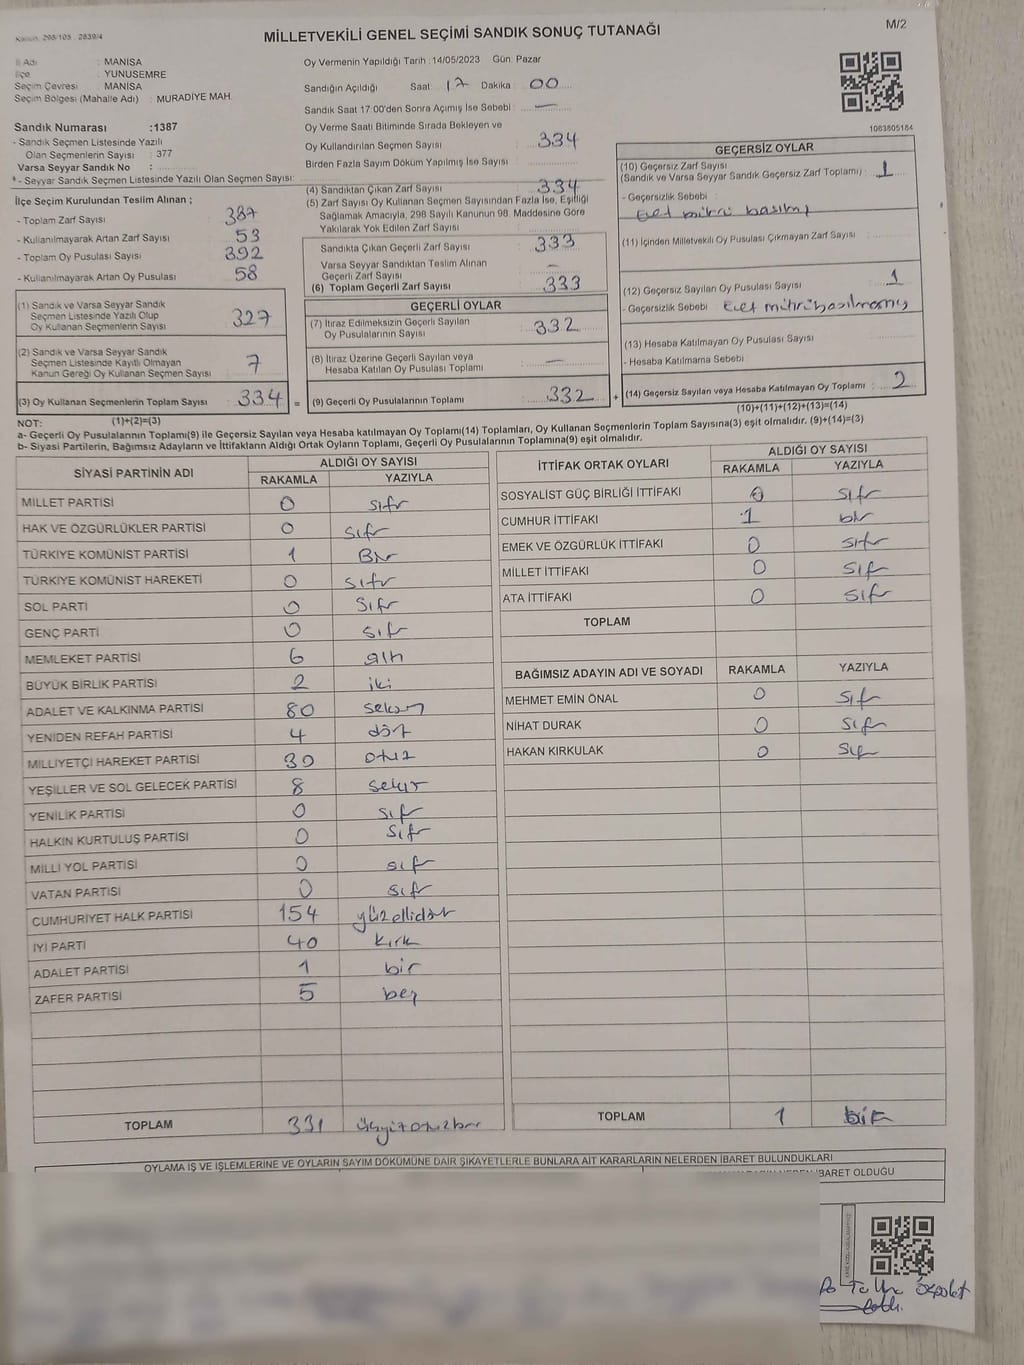 Kanun: 298/105 . 2839/4
M/2
MİLLETVEKİLİ GENEL SEÇİMİ SANDIK SONUÇ TUTANAĞI
İl Adı : MANİSA
İlçe : YUNUSEMRE
Seçim Çevresi : MANİSA
Seçim Bölgesi (Mahalle Adı) : MURADİYE MAH.
Sandık Numarası :1387
- Sandık Seçmen Listesinde Yazılı
Olan Seçmenlerin Sayısı : 377
Varsa Seyyar Sandık No :
* - Seyyar Sandık Seçmen Listesinde Yazılı Olan Seçmen Sayısı:
İlçe Seçim Kurulundan Teslim Alınan ;
- Toplam Zarf Sayısı 387
- Kullanılmayarak Artan Zarf Sayısı 53
- Toplam Oy Pusulası Sayısı 392
- Kullanılmayarak Artan Oy Pusulası 58
(1) Sandık ve Varsa Seyyar Sandık
Seçmen Listesinde Yazılı Olup
Oy Kullanan Seçmenlerin Sayısı 327
(2) Sandık ve Varsa Seyyar Sandık
Seçmen Listesinde Kayıtlı Olmayan
Kanun Gereği Oy Kullanan Seçmen Sayısı 7
(3) Oy Kullanan Seçmenlerin Toplam Sayısı 334 =
(1)+(2)=(3)
Oy Vermenin Yapıldığı Tarih : 14/05/2023 Gün: Pazar
Sandığın Açıldığı Saat 17 Dakika 00
Sandık Saat 17:00'den Sonra Açımış İse Sebebi : —
Oy Verme Saati Bitiminde Sırada Bekleyen ve
Oy Kullandırılan Seçmen Sayısı 334
Birden Fazla Sayım Döküm Yapılmış İse Sayısı
(4) Sandıktan Çıkan Zarf Sayısı 334
(5) Zarf Sayısı Oy Kullanan Seçmen Sayısından Fazla İse, Eşitliği
Sağlamak Amacıyla, 298 Sayılı Kanunun 98. Maddesine Göre
Yakılarak Yok Edilen Zarf Sayısı
Sandıkta Çıkan Geçerli Zarf Sayısı 333
Varsa Seyyar Sandıktan Teslim Alınan
Geçerli Zarf Sayısı —
(6) Toplam Geçerli Zarf Sayısı 333
GEÇERLİ OYLAR
(7) İtiraz Edilmeksizin Geçerli Sayılan
Oy Pusulalarının Sayısı 332
(8) İtiraz Üzerine Geçerli Sayılan veya
Hesaba Katılan Oy Pusulası Toplamı —
(9) Geçerli Oy Pusulalarının Toplamı 332 +
1063805184
GEÇERSİZ OYLAR
(10) Geçersiz Zarf Sayısı
(Sandık ve Varsa Seyyar Sandık Geçersiz Zarf Toplamı) : 1
- Geçersizlik Sebebi :
(11) İçinden Milletvekili Oy Pusulası Çıkmayan Zarf Sayısı
(12) Geçersiz Sayılan Oy Pusulası Sayısı 1
- Geçersizlik Sebebi Evet mührü basılmamış
(13) Hesaba Katılmayan Oy Pusulası Sayısı
- Hesaba Katılmama Sebebi
(14) Geçersiz Sayılan veya Hesaba Katılmayan Oy Toplamı : 2
(10)+(11)+(12)+(13)=(14)
NOT:
a- Geçerli Oy Pusulalarının Toplamı(9) ile Geçersiz Sayılan veya Hesaba katılmayan Oy Toplamı(14) Toplamları, Oy Kullanan Seçmenlerin Toplam Sayısına(3) eşit olmalıdır. (9)+(14)=(3)
b- Siyasi Partilerin, Bağımsız Adayların ve İttifakların Aldığı Ortak Oyların Toplamı, Geçerli Oy Pusulalarının Toplamına(9) eşit olmalıdır.
SİYASİ PARTİNİN ADI ALDIĞI OY SAYISI
RAKAMLA YAZIYLA
MİLLET PARTİSİ 0 sıfır
HAK VE ÖZGÜRLÜKLER PARTİSİ 0 sıfır
TÜRKİYE KOMÜNİST PARTİSİ 1 Bir
TÜRKİYE KOMÜNİST HAREKETİ 0 sıfır
SOL PARTİ 0 sıfır
GENÇ PARTİ 0 sıfır
MEMLEKET PARTİSİ 6 altı
BÜYÜK BİRLİK PARTİSİ 2 iki
ADALET VE KALKINMA PARTİSİ 80 seksen
YENİDEN REFAH PARTİSİ 4 dört
MİLLİYETÇİ HAREKET PARTİSİ 30 otuz
YEŞİLLER VE SOL GELECEK PARTİSİ 8 sekiz
YENİLİK PARTİSİ 0 sıfır
HALKIN KURTULUŞ PARTİSİ 0 sıfır
MİLLİ YOL PARTİSİ 0 sıfır
VATAN PARTİSİ 0 sıfır
CUMHURİYET HALK PARTİSİ 154 yüzellidört
İYİ PARTİ 40 kırk
ADALET PARTİSİ 1 bir
ZAFER PARTİSİ 5 beş
TOPLAM 331 üçyüzotuzbir
İTTİFAK ORTAK OYLARI ALDIĞI OY SAYISI
RAKAMLA YAZIYLA
SOSYALİST GÜÇ BİRLİĞİ İTTİFAKI 0 sıfır
CUMHUR İTTİFAKI 1 bir
EMEK VE ÖZGÜRLÜK İTTİFAKI 0 sıfır
MİLLET İTTİFAKI 0 sıfır
ATA İTTİFAKI 0 sıfır
TOPLAM
BAĞIMSIZ ADAYIN ADI VE SOYADI RAKAMLA YAZIYLA
MEHMET EMİN ÖNAL 0 sıfır
NİHAT DURAK 0 sıfır
HAKAN KIRKULAK 0 sıfır
TOPLAM 1 bir
OYLAMA İŞ VE İŞLEMLERİNE VE OYLARIN SAYIM DÖKÜMÜNE DAİR ŞİKAYETLERLE BUNLARA AİT KARARLARIN NELERDEN İBARET BULUNDUKLARI
İBARET OLDUĞU